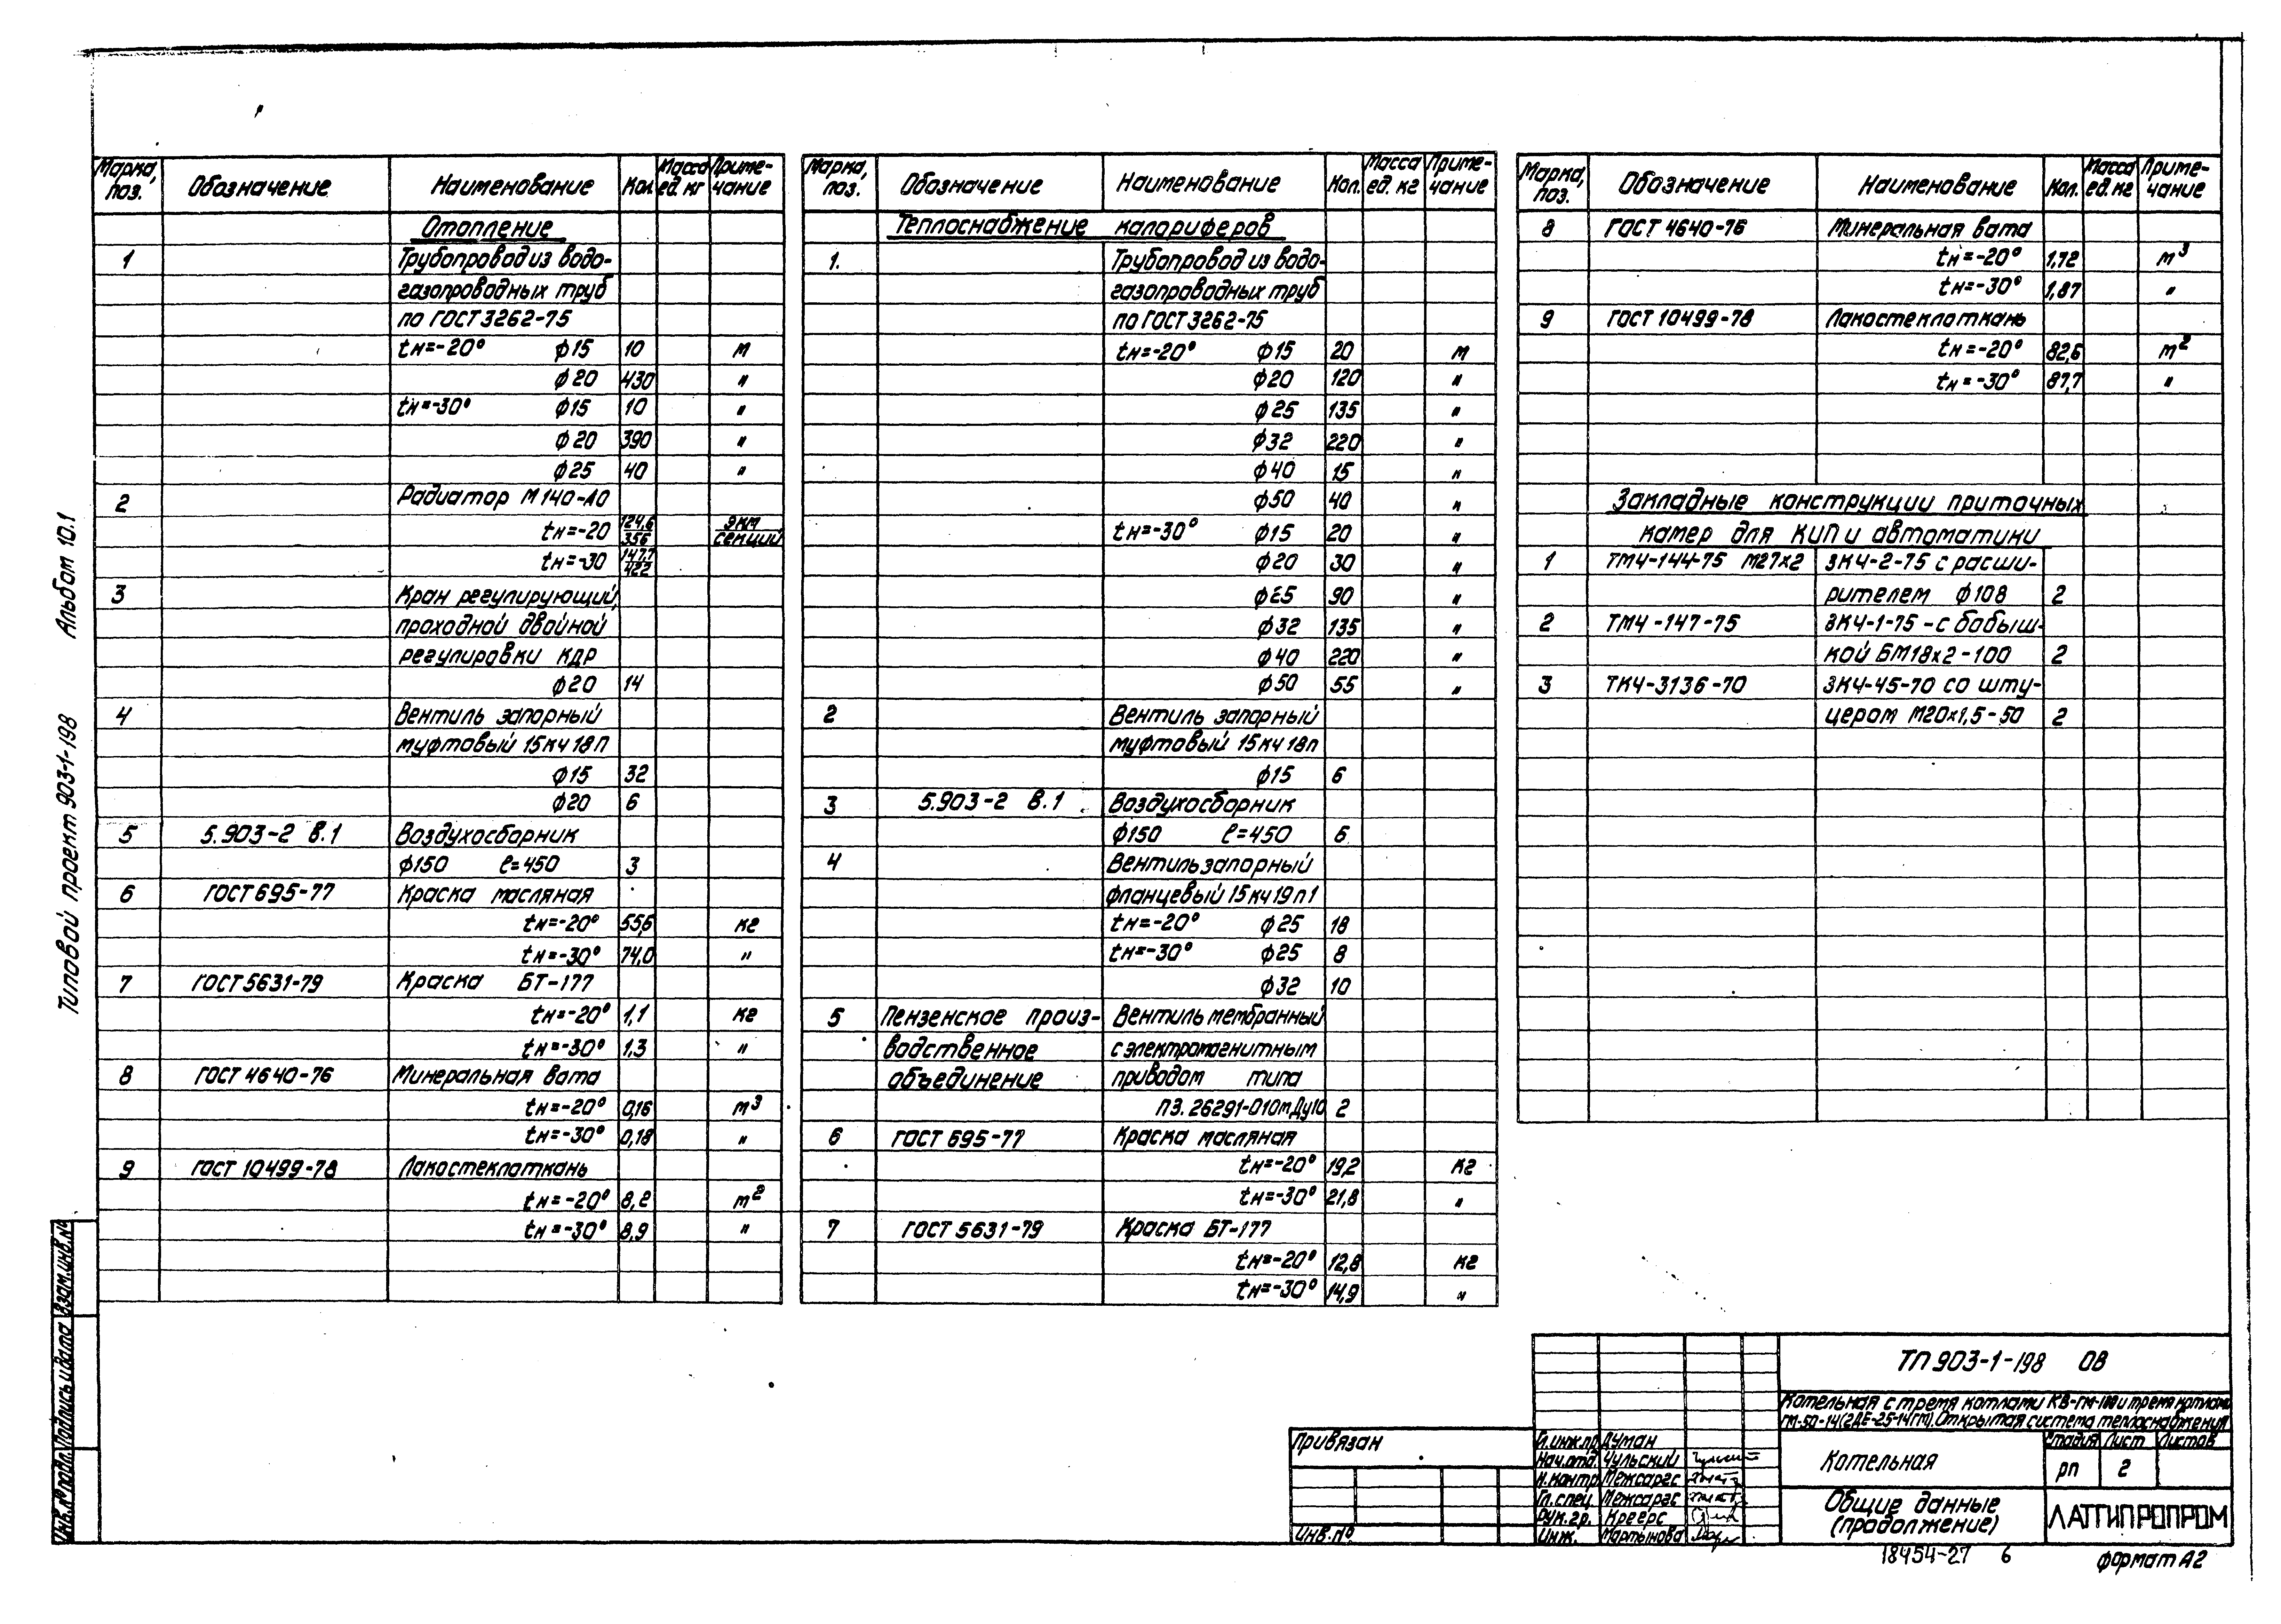 Альбом 10.1
Типовой проект 903-1-198
Марка, поз. Обозначение Наименование Кол. Масса ед. кг Примечание
Отопление
1 Трубопровод из водо-
газопроводных труб
по ГОСТ 3262-75
tн=-20° ф15 10 м
ф20 430 "
tн=-30° ф15 10 "
ф20 390 "
ф25 40 "
2 Радиатор М140-АО
tн=-20 124,6/356 экм/секций
tн=-30 147,7/422
3 Кран регулирующий,
проходной двойной
регулировки КДР
ф20 14
4 Вентиль запорный
муфтовый 15кч18п
ф15 32
ф20 6
5 5.903-2 в.1 Воздухосборник
ф150 ℓ=450 3
6 ГОСТ 695-77 Краска масляная
tн=-20° 55,6 кг
tн=-30° 74,0 "
7 ГОСТ 5631-79 Краска БТ-177
tн=-20° 1,1 кг
tн=-30° 1,3 "
8 ГОСТ 4640-76 Минеральная вата
tн=-20° 0,16 м³
tн=-30° 0,18 "
9 ГОСТ 10499-78 Лакостеклоткань
tн=-20° 8,2 м²
tн=-30° 8,9 "
Марка, поз. Обозначение Наименование Кол. Масса ед. кг Примечание
Теплоснабжение калориферов
1. Трубопровод из водо-
газопроводных труб
по ГОСТ 3262-75
tн=-20° ф15 20 м
ф20 120 "
ф25 135 "
ф32 220 "
ф40 15 "
ф50 40 "
tн=-30° ф15 20 "
ф20 30 "
ф25 90 "
ф32 135 "
ф40 220 "
ф50 55 "
2 Вентиль запорный
муфтовый 15кч18п
ф15 6
3 5.903-2 в.1 Воздухосборник
ф150 ℓ=450 6
4 Вентиль запорный
фланцевый 15кч19п1
tн=-20° ф25 18
tн=-30° ф25 8
ф32 10
5 Пензенское произ- Вентиль мембранный
водственное с электромагнитным
объединение приводом типа
ПЗ.26291-010м Ду10 2
6 ГОСТ 695-77 Краска масляная
tн=-20° 19,2 кг
tн=-30° 21,8 "
7 ГОСТ 5631-79 Краска БТ-177
tн=-20° 12,8 кг
tн=-30° 14,9 "
Марка, поз. Обозначение Наименование Кол. Масса ед. кг Примечание
8 ГОСТ 4640-76 Минеральная вата
tн=-20° 1,72 м³
tн=-30° 1,87 "
9 ГОСТ 10499-78 Лакостеклоткань
tн=-20° 82,6 м²
tн=-30° 87,7 "
Закладные конструкции приточных
камер для КИП и автоматики
1 ТМ4-144-75 М27х2 ЗК4-2-75 с расши-
рителем ф108 2
2 ТМ4-147-75 ЗК4-1-75-с бобыш-
кой БМ18х2-100 2
3 ТК4-3136-70 ЗК4-45-70 со шту-
цером М20х1,5-50 2
Инв.№ подл. Подпись и дата Взам.инв.№
Привязан
Инв.№
Гл.инж.пр Думан
Нач.отд. Чульский
Н.контр. Межсаргс
Гл.спец. Межсаргс
Рук.гр. Креерс
Инж. Мартынова
ТП 903-1-198 ОВ
Котельная с тремя котлами КВ-ГМ-100 и тремя котлами
ГМ-50-14(2ДЕ-25-14ГМ). Открытая система теплоснабжения
Котельная
Стадия Лист Листов
РП 2
Общие данные
(продолжение)
ЛАТГИПРОПРОМ
18454-27 6
формат А2